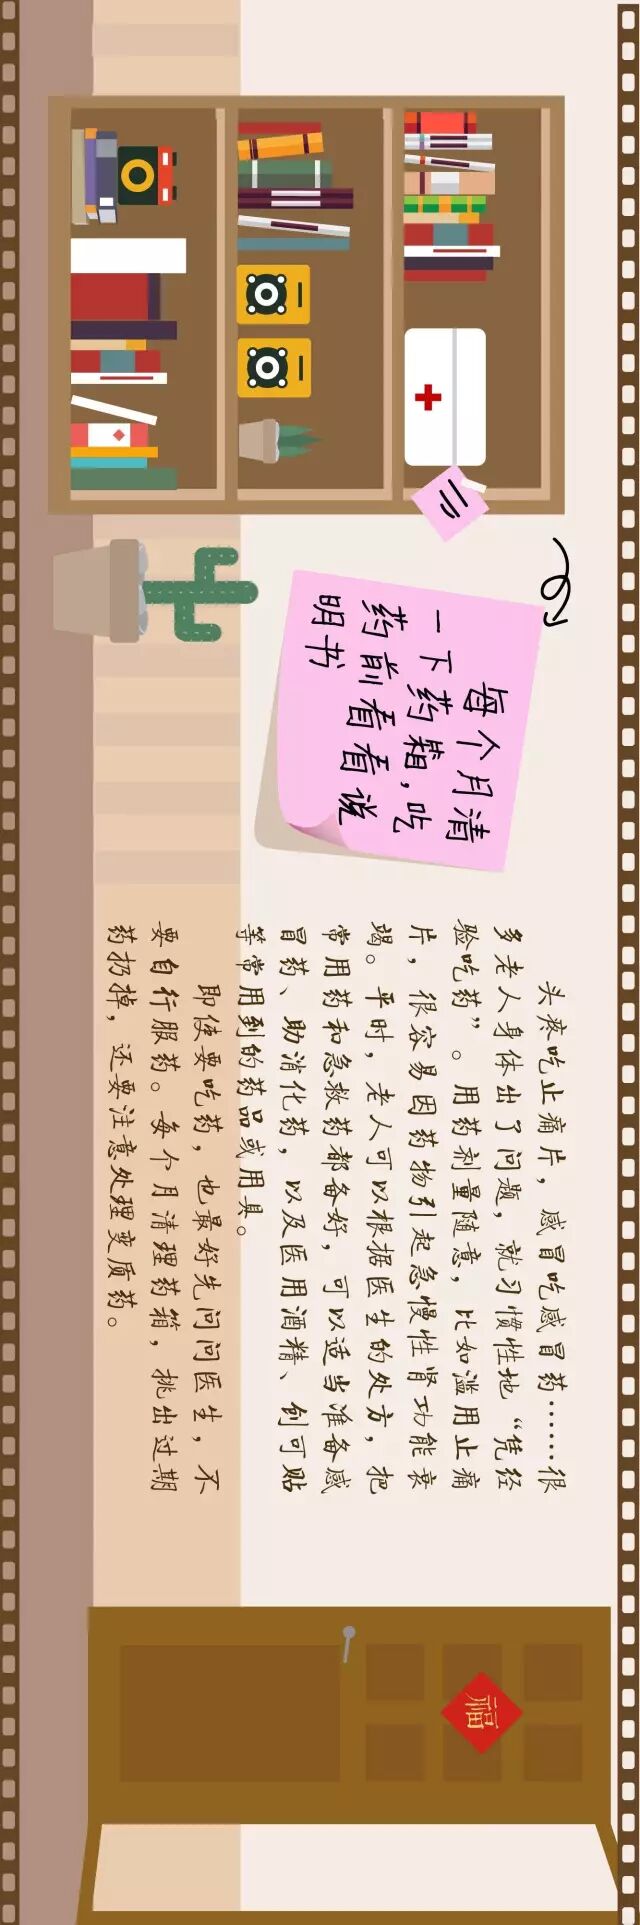 每个月清
一下药箱，吃
药前看看说
明书
头疼吃止痛片，感冒吃感冒药……很
多老人身体出了问题，就习惯性地“凭经
验吃药”。用药剂量随意，比如滥用止痛
片，很容易因药物引起急慢性肾功能衰
竭。平时，老人可以根据医生的处方，把
常用药和急救药都备好，可以适当准备感
冒药、助消化药，以及医用酒精、创可贴
等常用到的药品或用具。
即使要吃药，也最好先问问医生，不
要自行服药。每个月清理药箱，挑出过期
药扔掉，还要注意处理变质药。
福